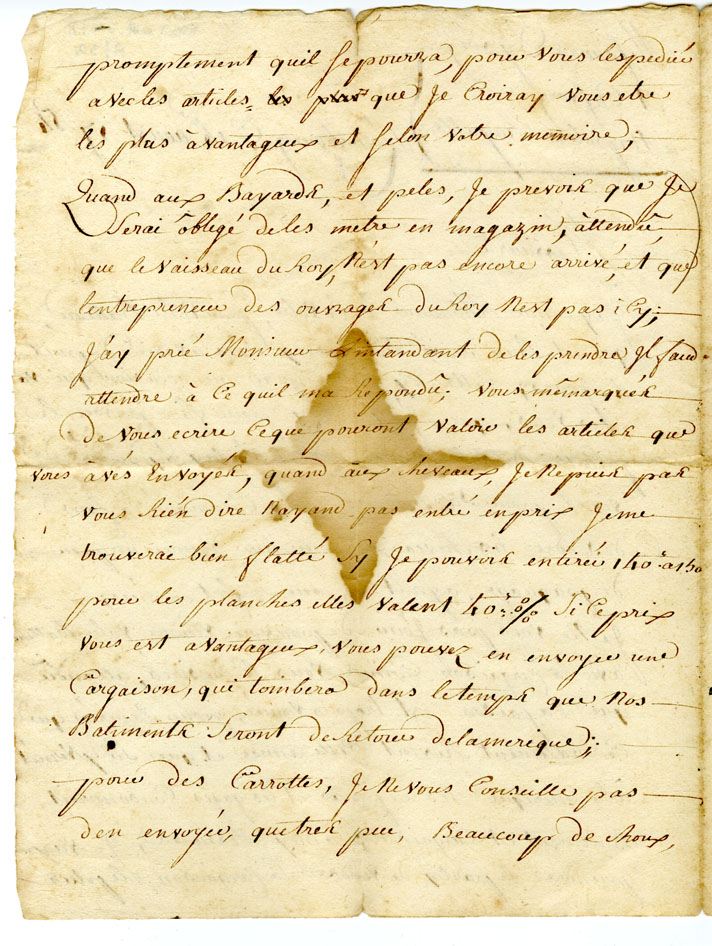 promptement quil se pourra, pour vous lespedié
avec les articles, que Je Croiray vous etre
les plus avantageux et selon votre memoire;
Quand aux Bayards, et peles, Je prevois que Je
Serai öblegé de les metre en magazin, attendû,
que le vaisseau du Roy, N'est pas encore arrivé, et que
l'entrepreneur des ouvrages du Roy N'est pas i Cy;
J'ay prié Monsieur Lintandant de les prendre Jl faud
attendre à Ce quil ma Repondû; vous mêmarqués
de vous ecrire Ceque pouront valoir les articles que
vous avés Envoyés, quand aux chevaux, Je Ne puis pas
vous Rién dire Nayand pas entré en prix Je me
trouverai bien flatté Sy Je pouvois entirér 140 a 150
pour les planches elles valent 40 %. Si Ce prix
vous est avantageux, vous pouvez en envoyer une
Cargaison, qui tombera dans le temps que Nos
Batiments Seront de Retour delamerique;
pour des Carrottes, Je Ne vous Conseille pas
den envoyér, que tres peu, Beaucoup de choux,